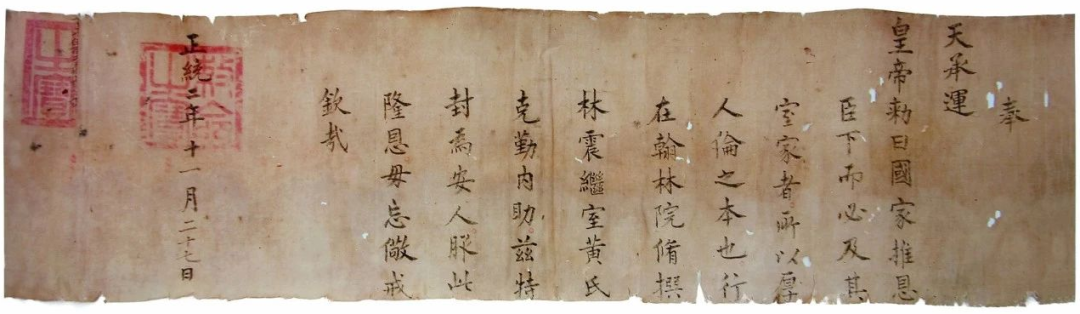 奉
天承運
皇帝勑曰國家推恩
臣下而必及其
室家者所以厚
人倫之本也行
在翰林院脩撰
林震繼室黃氏
克勤內助茲特
封為安人服此
隆恩毋忘儆戒
欽哉
正統二年十一月二十七日
之寶